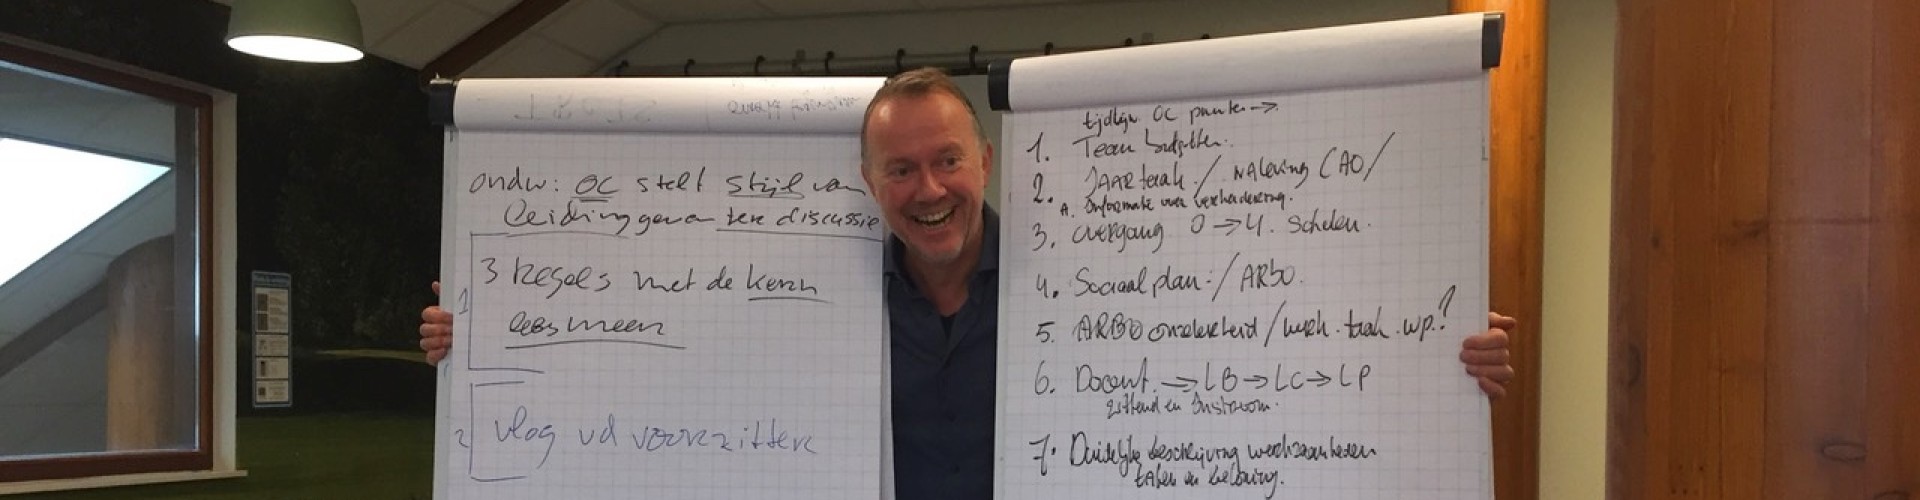 ondw: OC stelt stijl van
leidinggevan ter discussie
1
3 Regels met de kern
lees meer
2
vlog vd voorzitter
tijdlijn OC punten →
1. Team budgetten.
2. JAARtaak / NALeving CAO/
A. Informatie over verhindering.
3. overgang 0 → 4. scholen.
4. Sociaal plan: / ARBO.
5. ARBO onzekerheid / werk. taak. wp.?
6. Docent. → LB → LC → LP
zittend en Instroom.
7. Duidelijke beschrijving werkzaamheden
taken en